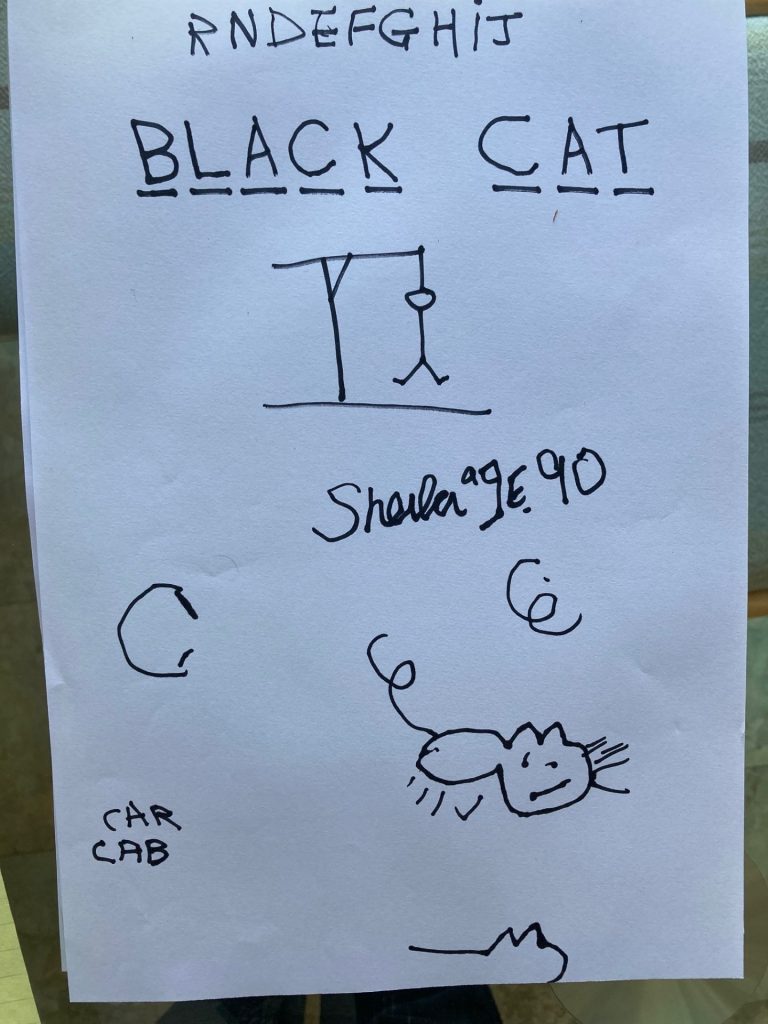 RNDEFGHIJ
BLACK CAT
Sheila age 90
C
CAR
CAB